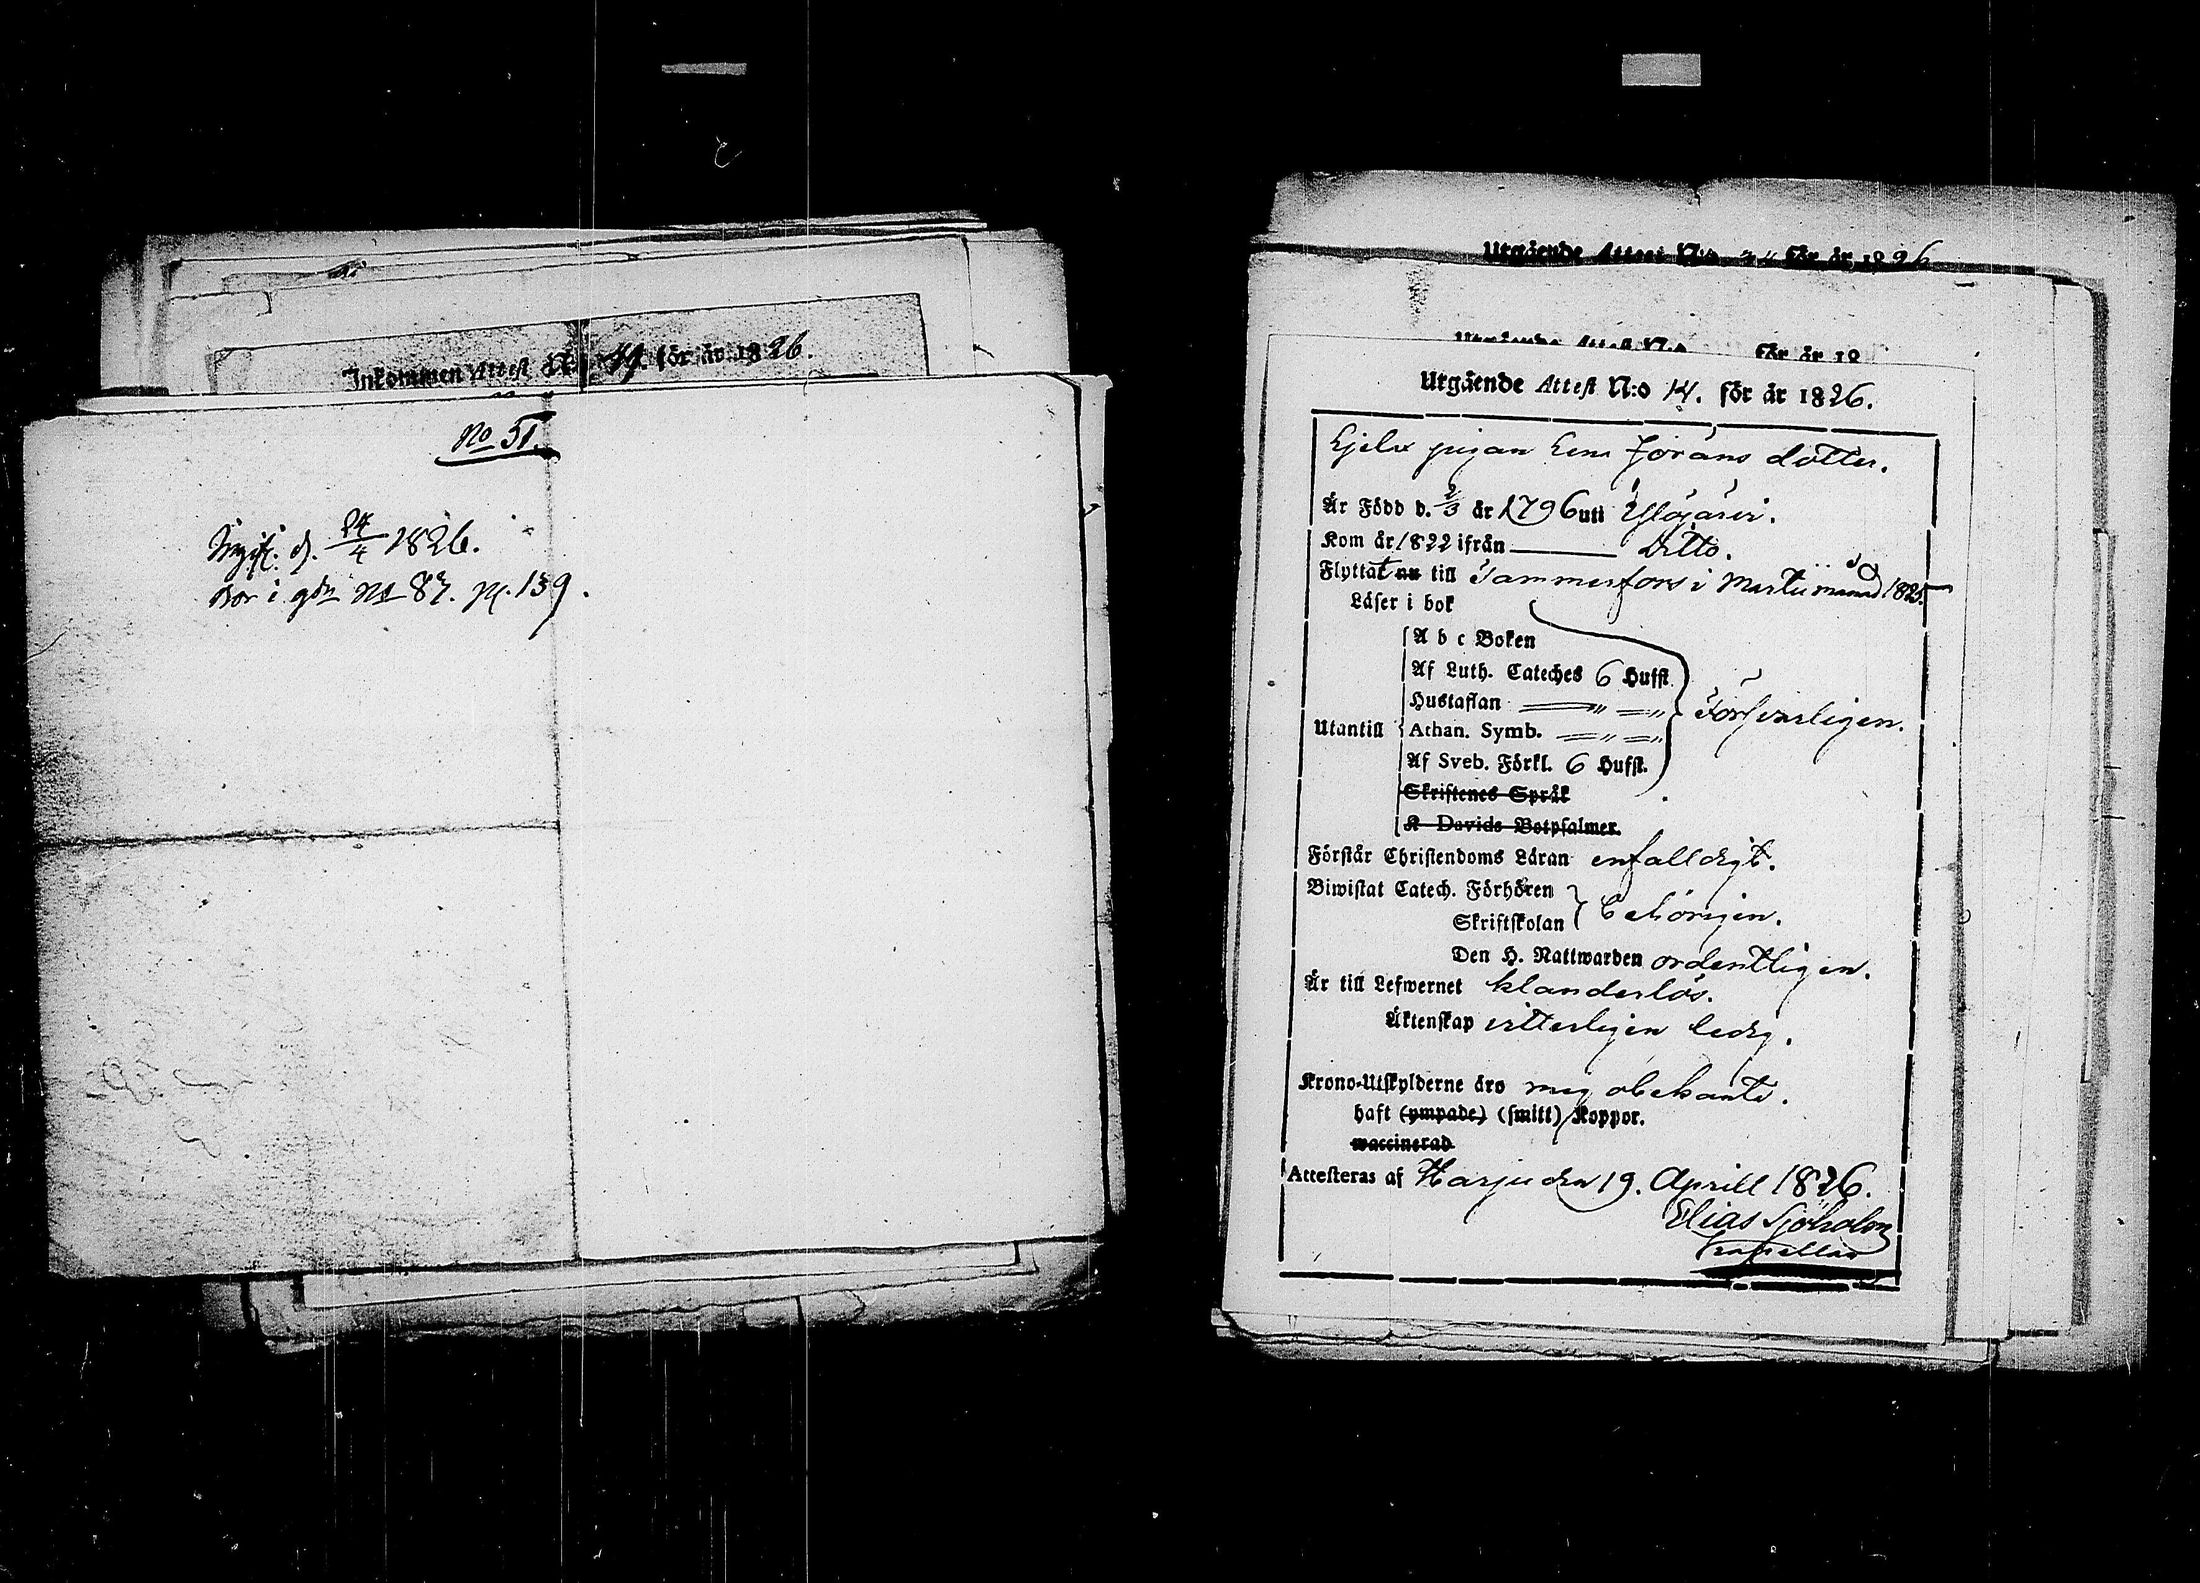 Inkommen Attest N:o 49. för år 1826.
No 51.
d. 24/4 1826.
Bor i gdn No 87. p. 139.
Utgående Attest N:o för år 1826
Utgående Attest N:o för år 18
Utgående Attest N:o 14. för år 1826.
pigan Lena Jörans dotter.
Är Född d. 2/3 år 1796 uti Ylöjärvi.
Kom år 1822 ifrån ——— Ditto.
Flyttat nu till Tammerfors i Martii månad 1825.
Läser i bok
A b c Boken
Af Luth. Cateches 6 Hufst.
Hustaflan
Försvarligen.
Utantill Athan. Symb.
Af Sveb. Förkl. 6 Hufst.
Skriftenes Språk
K Davids Botpsalmer.
Förstår Christendoms Läran enfalldigt.
Biwistat Catech. Förhören
Skriftskolan behörigen.
Den H. Nattwarden ordentligen.
Är till Lefwernet klanderlös.
Äktenskap vitterligen ledig.
Krono-Utskylderne äro mig obekanta.
haft (ympade) (smitt) Koppor.
waccinerad
Attesteras af Harju den 19. Aprill 1826.
Elias Sjöholm
Capellan